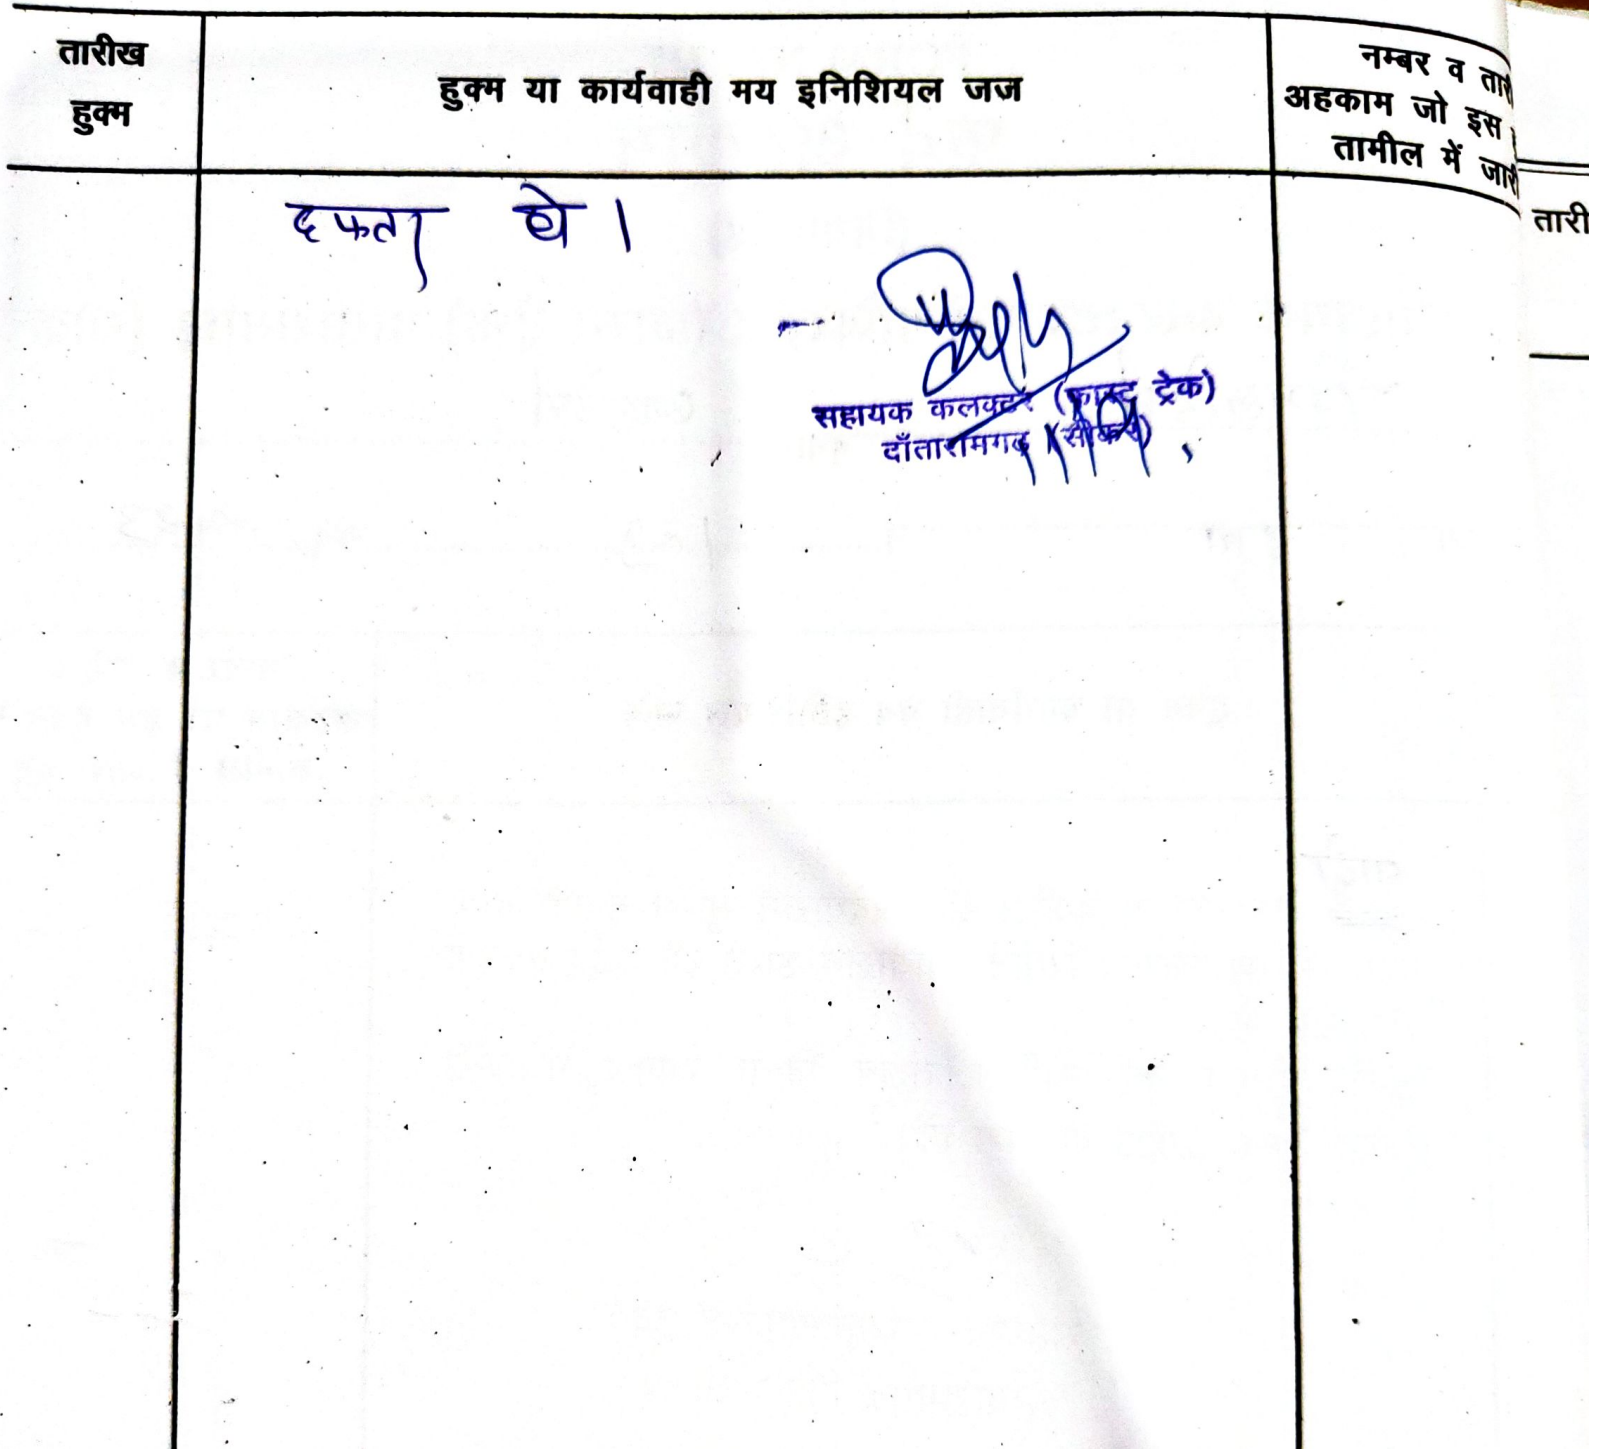 तारीख
हुक्म
हुक्म या कार्यवाही मय इनिशियल जज
नम्बर व तारी
अहकाम जो इस
तामील में जारी
तारी
दफ्तर हो ।
सहायक कलक्टर (फास्ट ट्रेक)
दाँतारामगढ़ (सीकर)